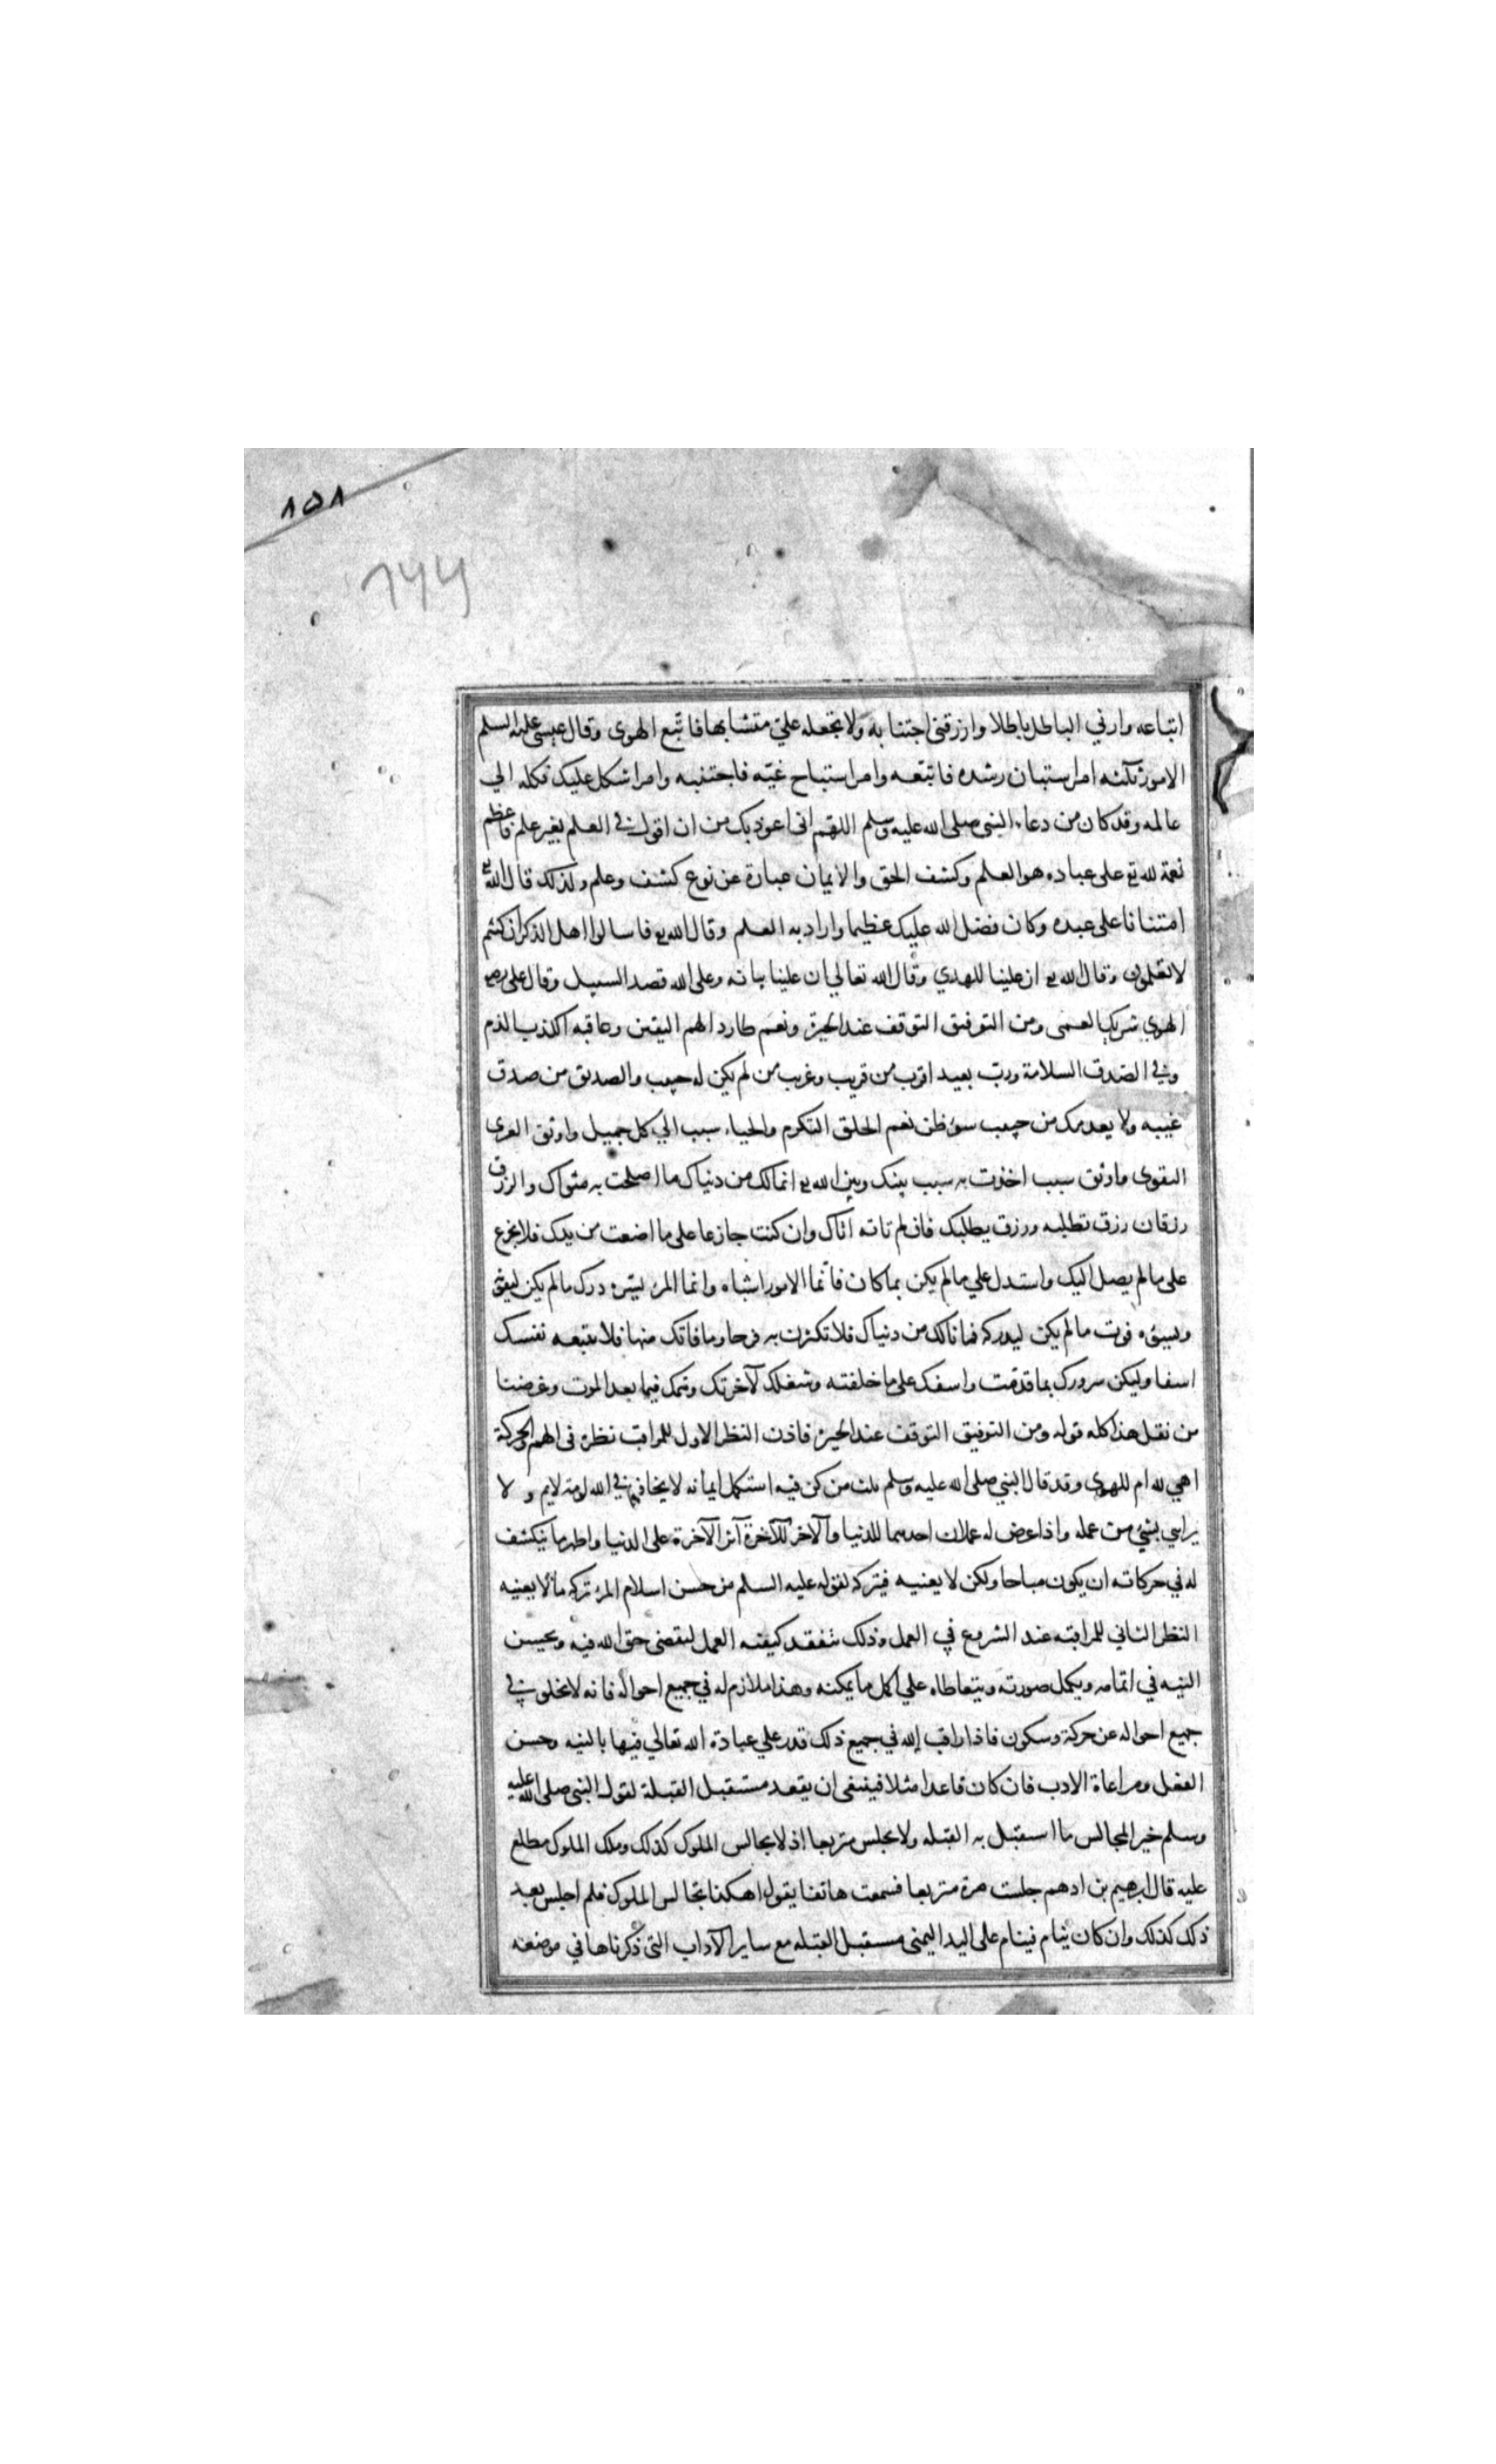 ٨٥٨
٦٢٢
اتباعه وارني الباطل باطلا وارزقني اجتنابه ولا تجعله علي متشابها فاتبع الهوى وقال عيسى عليه السلم
الامور ثلثه امر استبان رشده فاتبعه وامر استباح غيه فاجتنبه وامر اشكل عليك فكله الي
عالمه وقد كان من دعاء النبى صلى الله عليه وسلم اللهم انى اعوذ بك من ان اقول في العلم بغير علم فاعظم
نعمة لله تع على عباده هو العلم وكشف الحق والايمان عبارة عن نوع كشف وعلم ولذلك قال الله تع
امتنانا على عبده وكان فضل الله عليك عظيما واراد به العلم وقال الله تع فاسالوا اهل الذكر ان كنتم
لا تعلمون وقال الله تع ان علينا للهدي وقال الله تعالي ان علينا بيانه وعلى الله قصد السبيل وقال على رض
الهوي شريك العمى ومن التوفيق التوقف عند الحيرة ونعم طارد الهم اليقين وعاقبة الكذب الذم
وفي الصدق السلامة ورب بعيد اقرب من قريب وغريب من لم يكن له حبيب والصديق من صدق
غيبه ولا يعدمك من حبيب سوء ظن نعم الخلق التكرم والحياء سبب الي كل جميل واوثق العرى
التقوى واوثق سبب اخذت به سبب بينك وبين الله تع انما لك من دنياك ما اصلحت به مثواك والرزق
رزقان رزق تطلبه ورزق يطلبك فان لم تاته اتاك وان كنت جازعا على ما اضعت من يدك فلا تجزع
على ما لم يصل اليك واستدل علي ما لم يكن بما كان فانما الامور اشباه وانما المرء ليسره درك ما لم يكن ليفوته
ويسوءه فوت ما لم يكن ليدركه فما نالك من دنياك فلا تكثرن به فرحا وما فاتك منها فلا تتبعه نفسك
اسفا وليكن سرورك بما قدمت واسفك على ما خلفته وشغلك لآخرتك وهمك فيما بعد الموت وغرضنا
من نقل هذا كله قوله ومن التوفيق التوقف عند الحيرة فاذن النظر الاول للمراقب نظره فى الهم والحركة
اهي لله ام للهوي وقد قال النبي صلى الله عليه وسلم ثلث من كن فيه استكمل ايمانه لا يخاف في الله لومة لايم و لا
يرايى بشيء من عمله واذا عرض له عملان احدهما للدنيا والآخر للآخرة آثر الآخرة على الدنيا واظهر ما ينكشف
له في حركاته ان يكون مباحا ولكن لا يعنيه فيتركه لقوله عليه السلم من حسن اسلام المرء تركه ما لا يعنيه
النظر الثاني للمراقبة عند الشروع في العمل وذلك بتفقد كيفية العمل ليقضى حق الله فيه ويحسن
النيه في اتمامه ويكمل صورته ويتعاطاه علي اكمل ما يمكنه وهذا ملازم له في جميع احواله فانه لا يخلو في
جميع احواله عن حركة وسكون فاذا راقب الله في جميع ذلك قدر علي عبادة الله تعالي فيها بالنيه وحسن
الفعل ومراعاة الادب فان كان قاعدا مثلا فينبغى ان يقعد مستقبل القبلة لقول النبى صلى الله عليه
وسلم خير المجالس ما استقبل به القبله ولا يجلس متربعا اذ لا يجالس الملوك كذلك وملك الملوك مطلع
عليه قال ابرهيم بن ادهم جلست مرة متربعا فسمعت هاتفا يقول اهكذا تجالس الملوك فلم اجلس بعد
ذلك كذلك وان كان ينام فينام على اليد اليمنى مستقبل القبله مع ساير الآداب التى ذكرناها في موضعه